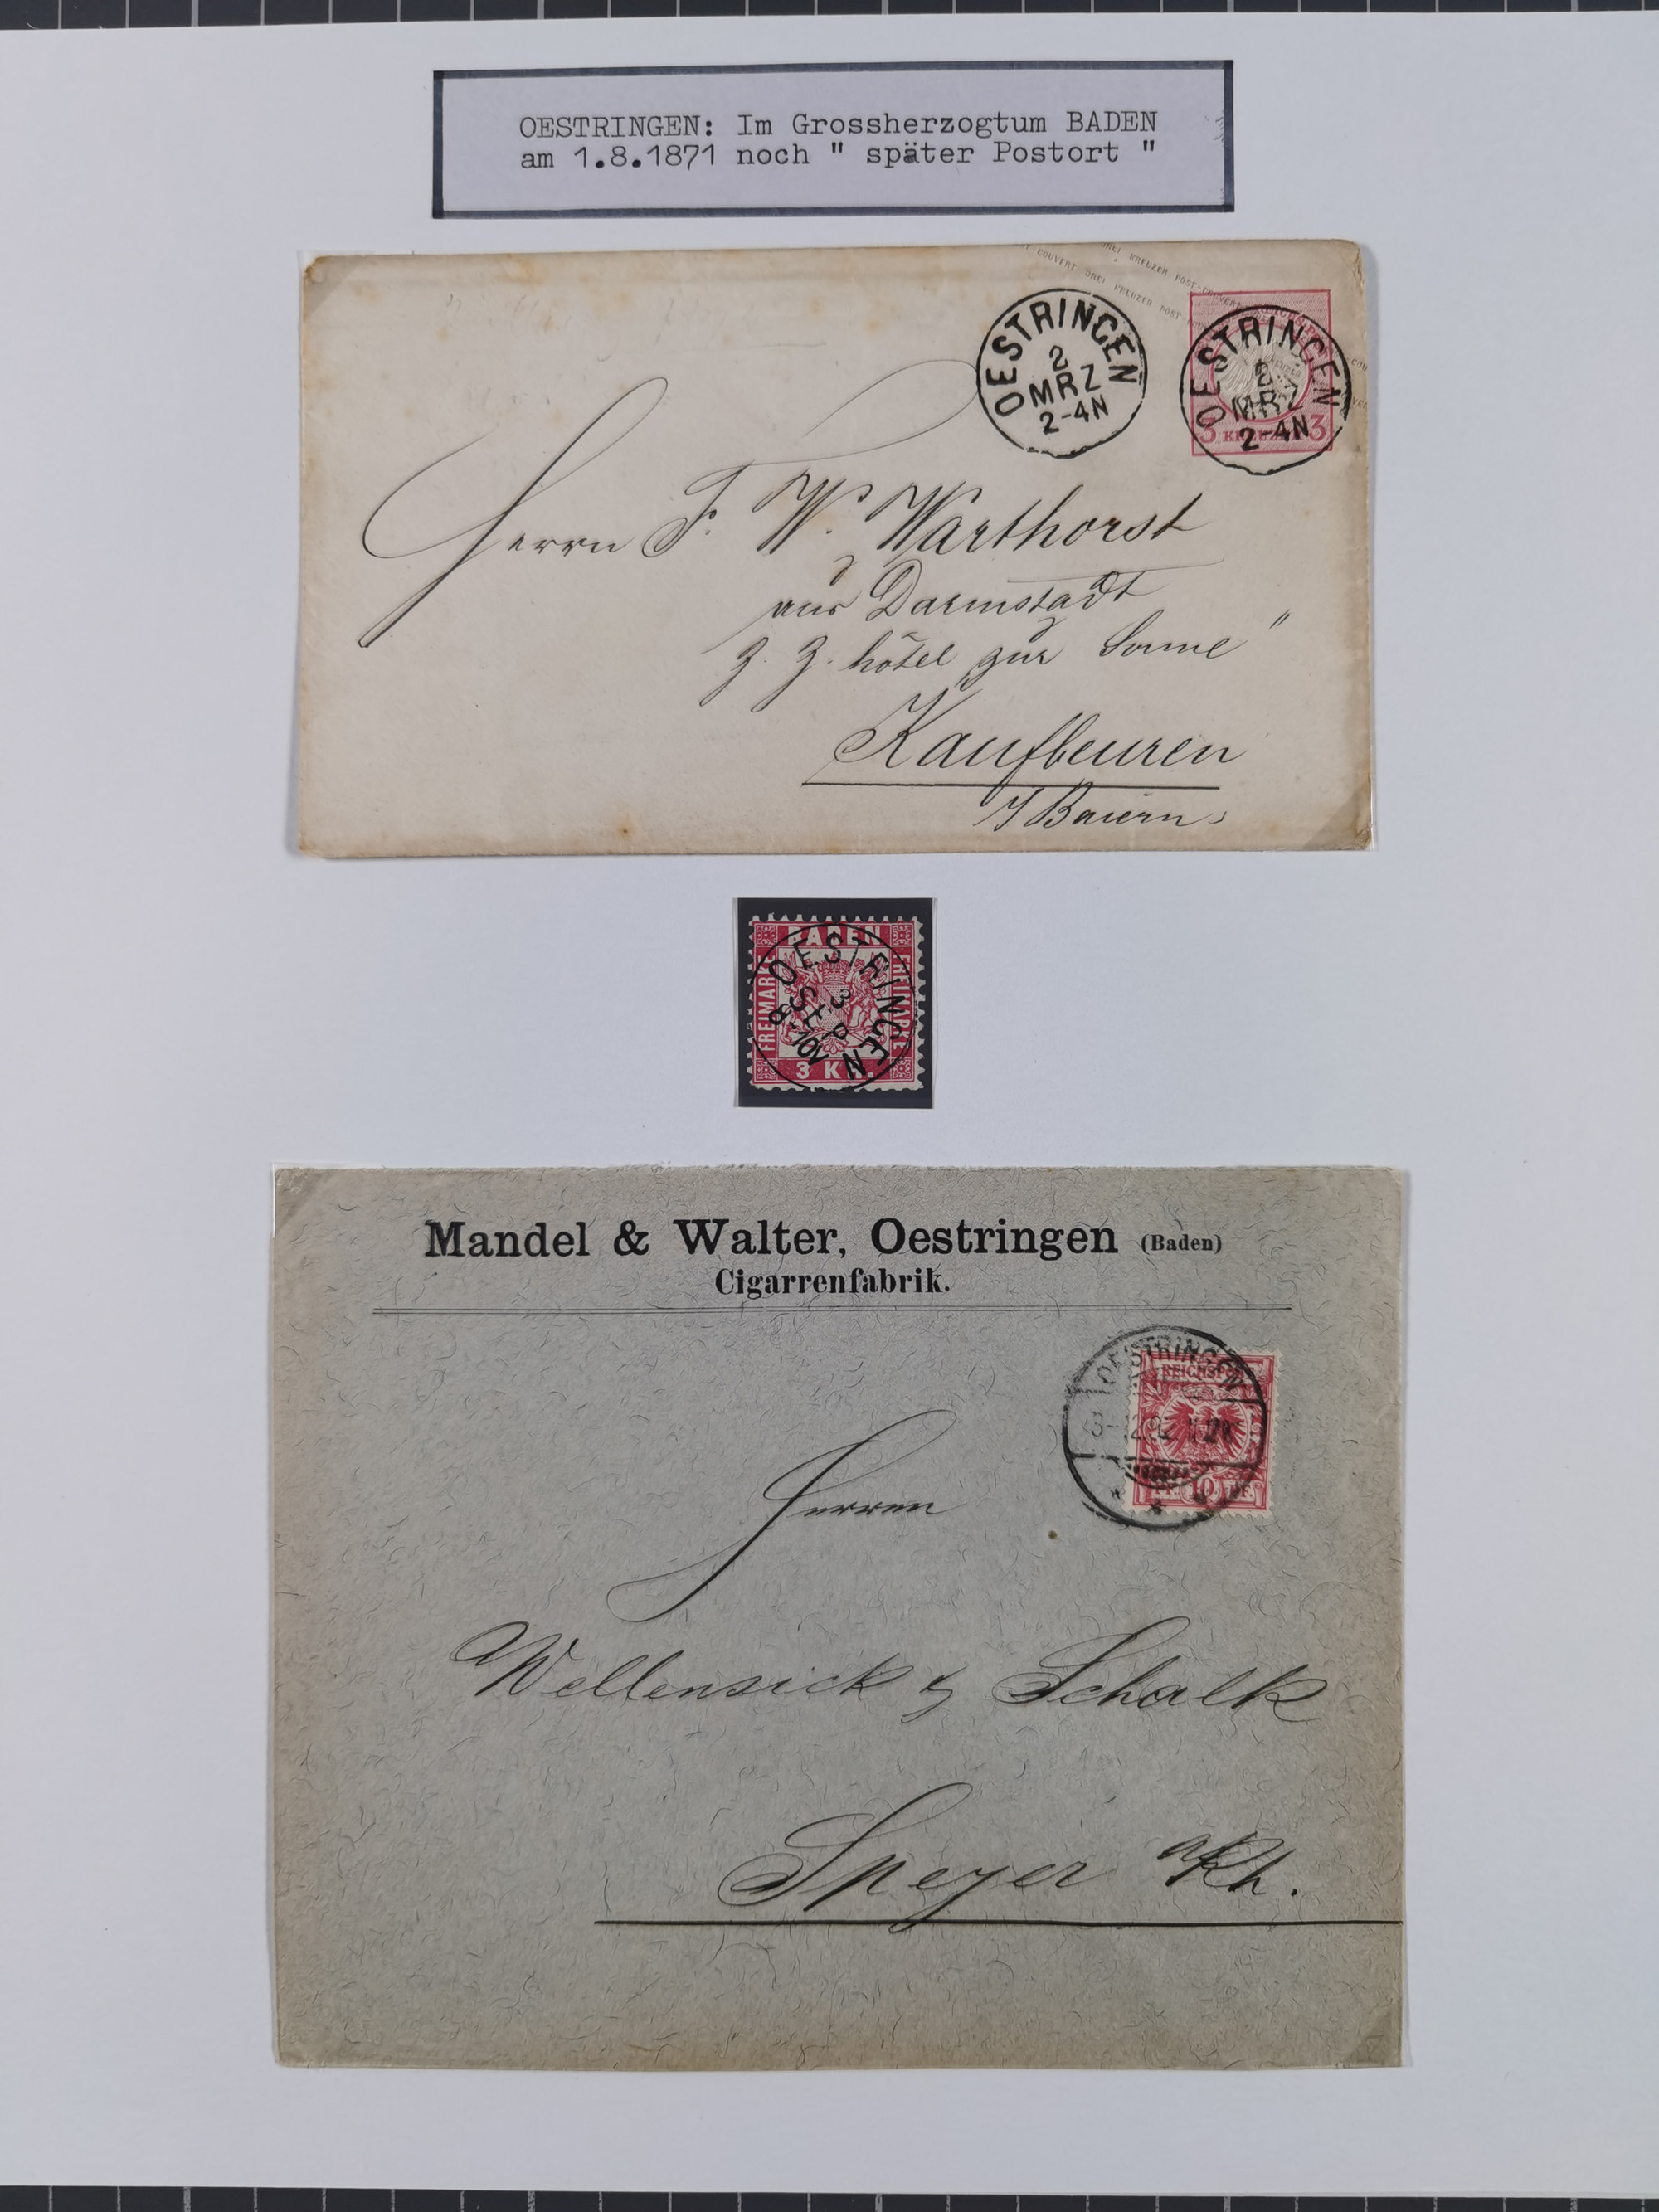 OESTRINGEN: Im Grossherzogtum BADEN
am 1.8.1871 noch " später Postort "
DREI KREUZER POST-COUVERT
COUVERT DREI KREUZER POST-
OESTRINGEN
2
MRZ
2-4N
OESTRINGEN
2
MRZ
2-4N
3 KREUZER 3
Herrn F. W. Warthorst
aus Darmstadt
z. Z. hôtel zur Sonne"
Kaufbeuren
i/Baiern
BADEN
FREIMARKE
FREIMARKE
3 KR.
OESTRINGEN
3
SEP
Mandel & Walter, Oestringen (Baden)
Cigarrenfabrik.
OESTRINGEN
REICHSPOST
PF. 10 PF.
Herren
Wellensick & Schalk
Speyer a/Rh.